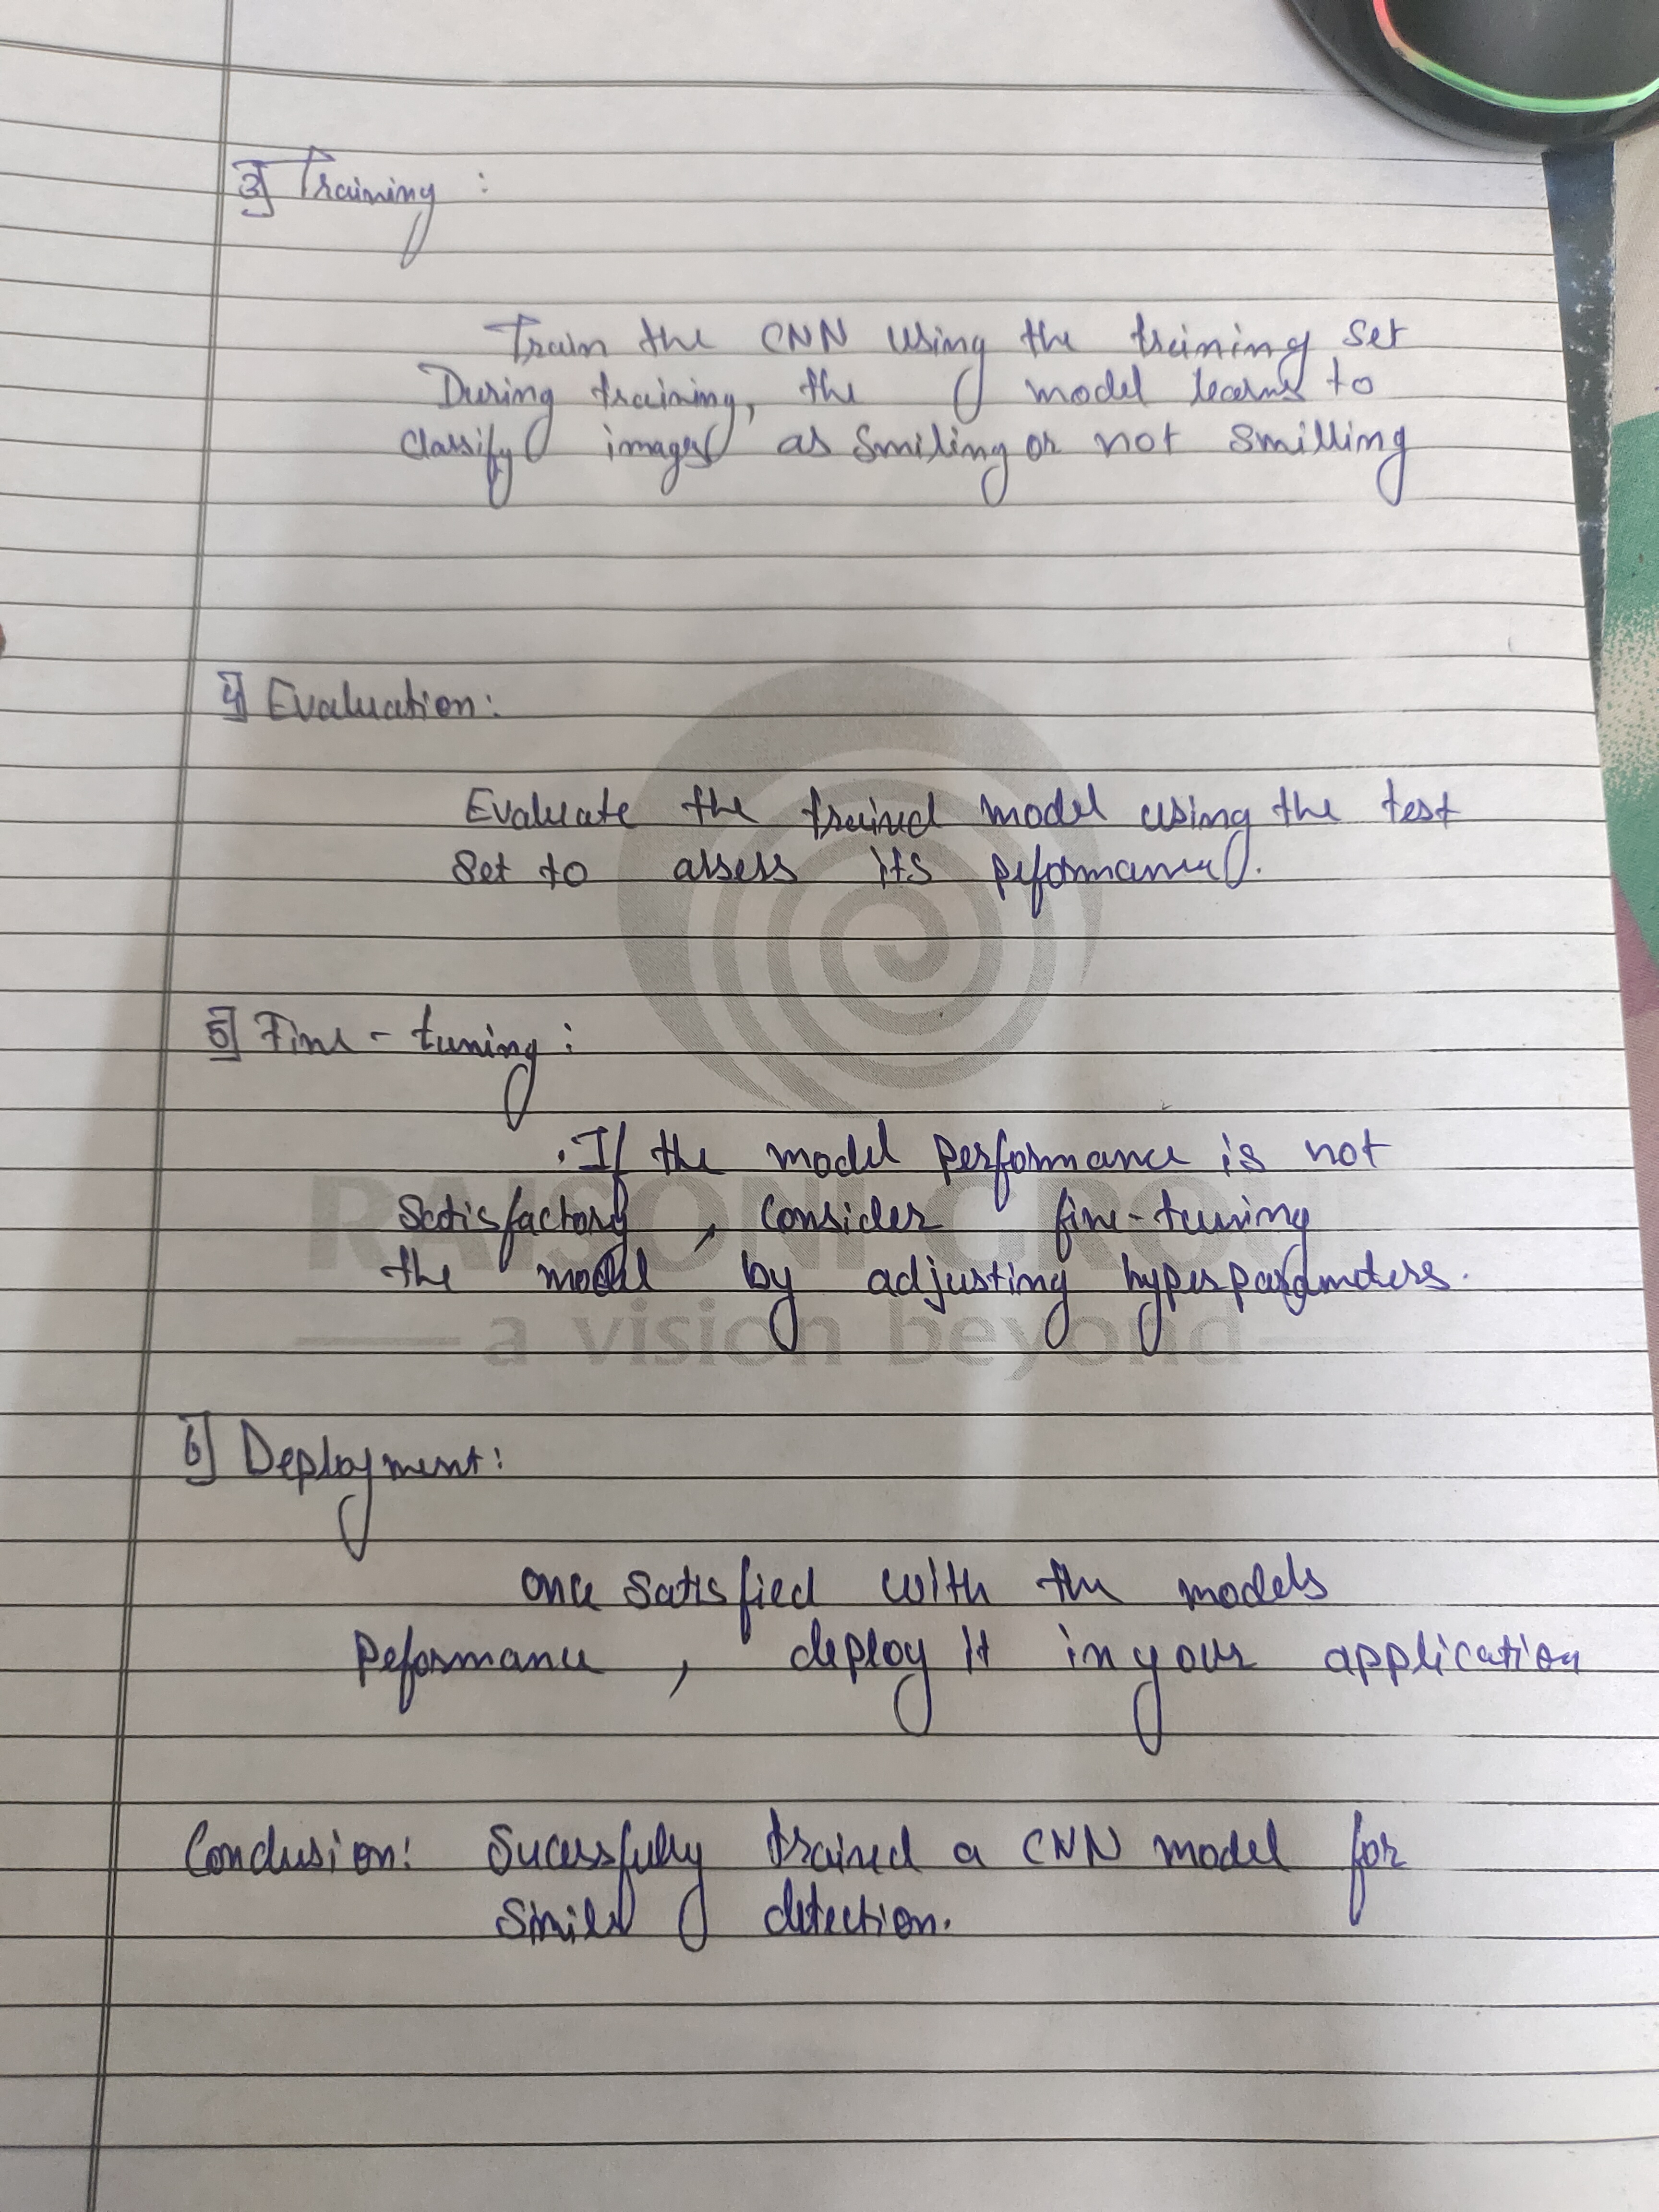 3] Training :
Train the CNN using the training set
During training, the model learns to
classify images as smiling or not smilling
4] Evaluation:
Evaluate the trained model using the test
set to assess its peformance.
5] Fine-tuning :
.If the model performance is not
satisfactory, consider fine-tuning
the model by adjusting hyperparameters.
RAISONI GROU
a vision beyond
6] Deployment:
once satisfied with the models
peformance, deploy it in your application
Conclusion: Sucessfully trained a CNN model for
smile detection.